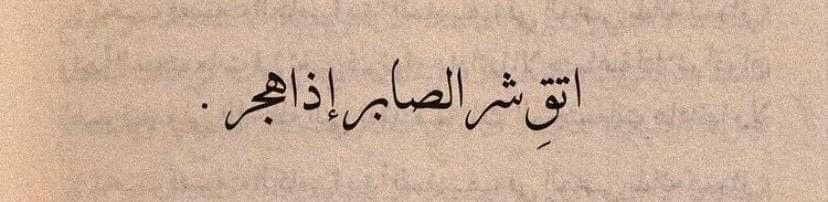 اتقِ شر الصابر إذا هجر .